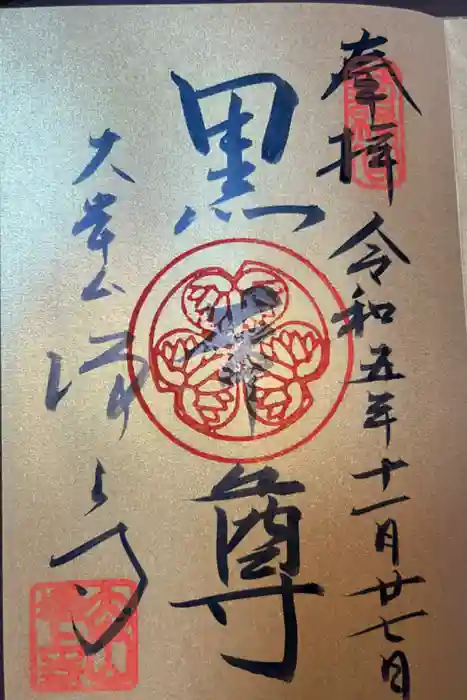 奉拝 令和五年十一月廿七日
黒本尊
大本山 増上寺